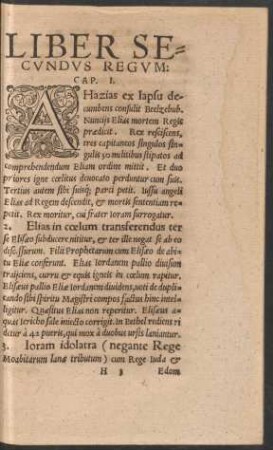 LIBER SE-
CVNDVS REGVM:
CAP. I.
AHazias ex lapsu de-
cumbens consulit Beelzebub.
Nuncijs Elias mortem Regis
prædicit. Rex resciscens,
tres capitaneos singulos sin-
gulis 50 militibus stipatos ad
comprehendendum Eliam ordine mittit. Et duo
priores igne cœlitus devocato perduntur cum suis.
Tertius autem sibi suisq; parci petit. Iussu angeli
Elias ad Regem descendit, & mortis sententiam re-
petit. Rex moritur, cui frater Ioram surrogatur.
2. Elias in cœlum transferendus ter
se Elisæo subducere nititur, & ter ille negat se ab eo
discessurum. Filij Prophetarum cum Elisæo de abi-
tu Eliæ conferunt. Elias Iordanem pallio divisum
trajiciens, curru & equis igneis in cœlum rapitur.
Elisæus pallio Eliæ Iordanem dividens, voti de dupli-
cando sibi spiritu Magistri compos factus hinc intel-
ligitur. Quæsitus Elias non reperitur. Elisæus a-
quas Iericho sale iniecto corrigit. In Bethel rediens ri
detur à 42 pueris, qui mox à duobus ursis laniantur.
3. Ioram idolatra (negante Rege
Moabitarum lanæ tributum) cum Rege Iuda &
H 3 Edom